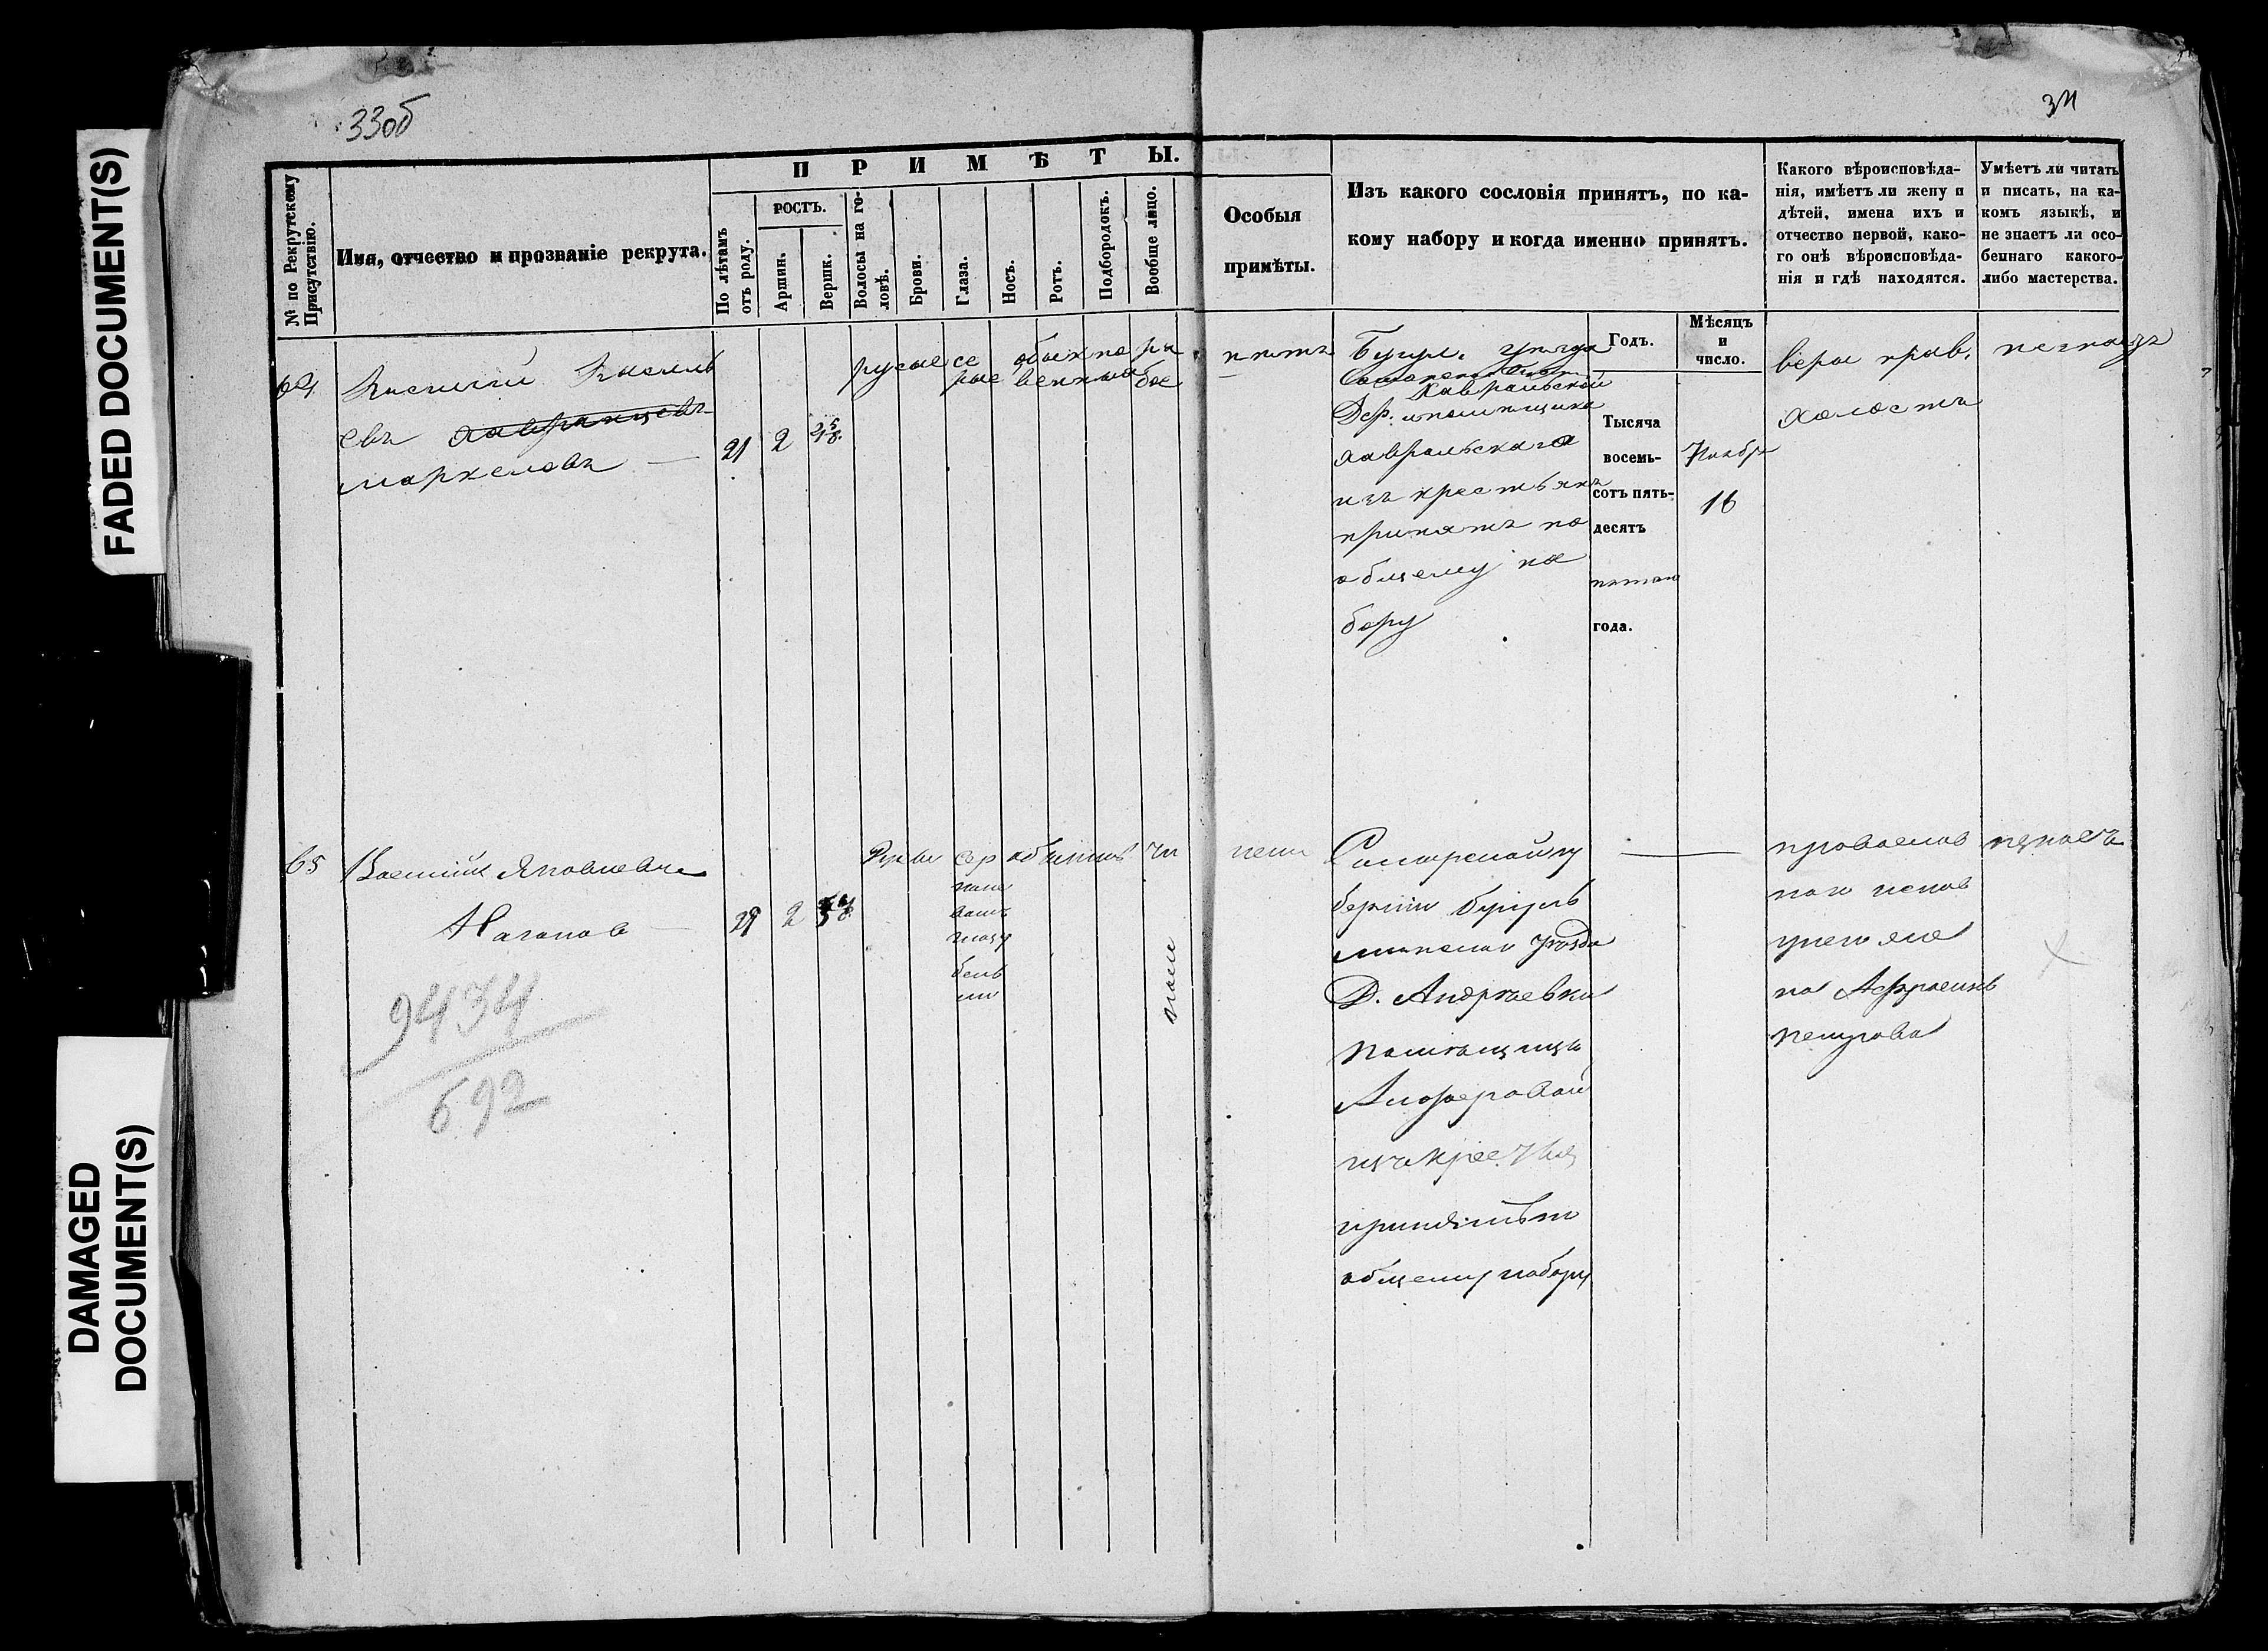 FADED DOCUMENT(S)
DAMAGED DOCUMENT(S)
33об
34
№ по Рекрутскому Присутствію.
Имя, отчество и прозваніе рекрута.
ПРИМѢТЫ.
По лѣтамъ отъ роду.
РОСТЪ.
Аршин.
Вершк.
Волосы на головѣ.
Брови.
Глаза.
Носъ.
Ротъ.
Подбородокъ.
Вообще лицо.
Особыя
примѣты.
Изъ какого сословія принятъ, по ка-
кому набору и когда именно принятъ.
Какого вѣроисповѣда-
нія, имѣетъ ли жену и
дѣтей, имена ихъ и
отчество первой, како-
го онѣ вѣроисповѣда-
нія и гдѣ находятся.
Умѣетъ ли читать
и писать, на ка-
комъ языкѣ, и
не знаетъ ли осо-
беннаго какого-
либо мастерства.
64
Василій Василь
евъ
маркеловъ
21
2
русые
се
рые
обыкно
венные
ря
бое
нѣтъ
Бугул. уезда
Хавральской
Дер. помещика
Хавральскаго
изъ крестьянъ
принятъ по
общему на
бору
Годъ.
Тысяча
восемь-
сотъ пять-
десятъ
пятаго
года.
Мѣсяцъ
и
число.
Ноября
16
веры прав.
холостъ
незнаетъ
65
Василий Яковлевъ
Наганов
2
9434
692
Русы
сер
обыкнов
чи
стое
нет
Самарской гу
бернии Бугуль
минской Уезда
Д. Андреевки
помѣщицы
Алферовой
принятъ по
общему набору
православ
на Афросинь
Петрова